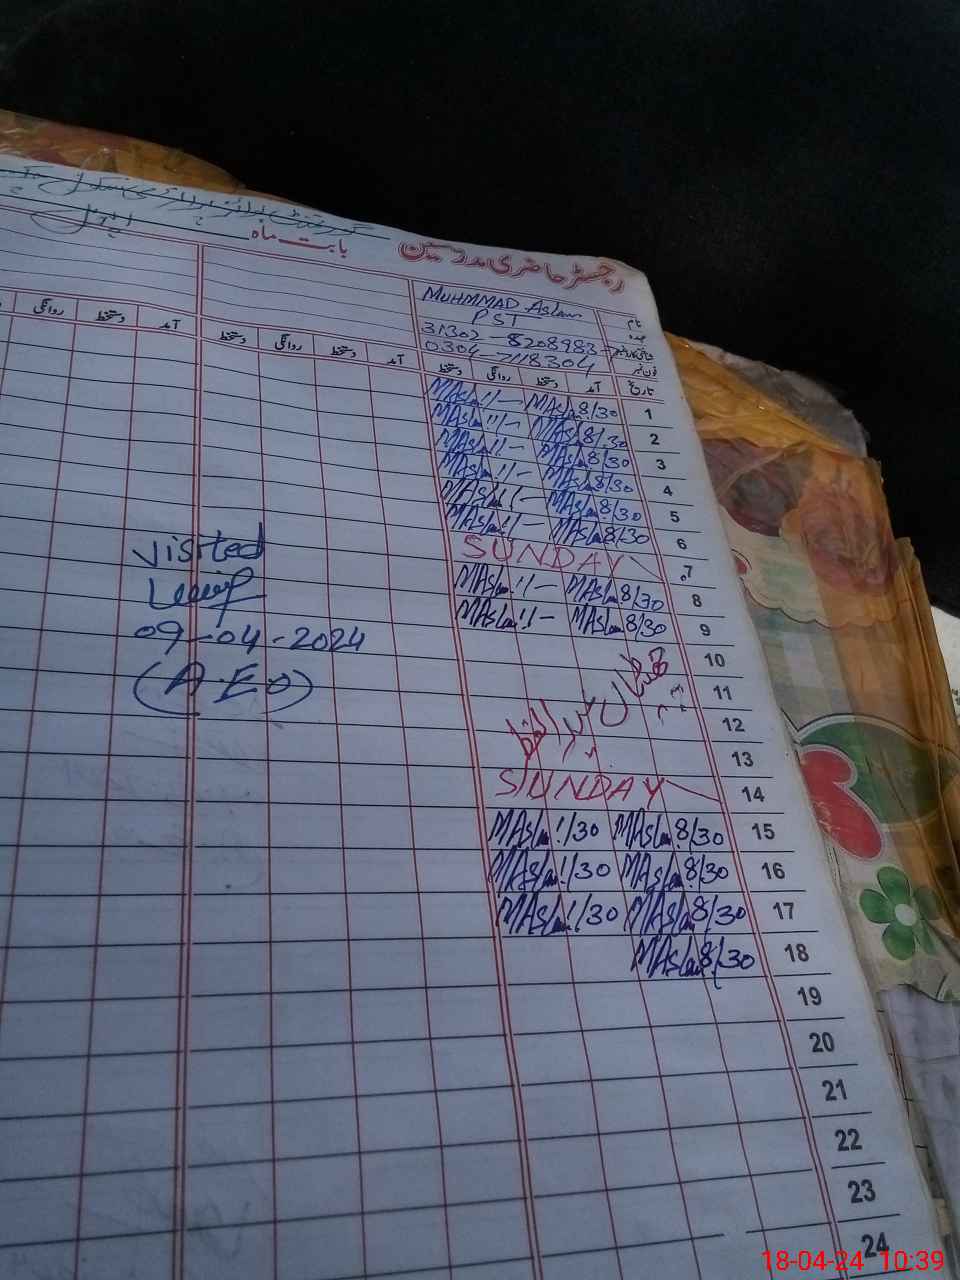 رجسٹر حاضری مدرسین
بابت ماہ اپریل
نام MUHMMAD Aslam
عہدہ PST
31302-8208983-
فون نمبر 0304-7118304
تاریخ آمد دستخط روانگی دستخط آمد دستخط روانگی دستخط آمد دستخط روانگی
1 8/30 MAslam 11- MAslam
2 8/30 MAslam 11- MAslam
3 8/30 MAslam 11- MAslam
4 8/30 MAslam 11- MAslam
5 8/30 MAslam 11- MAslam
6 8/30 MAslam 11- MAslam
7 SUNDAY
8 8/30 MAslam 11- MAslam
9 8/30 MAslam 11- MAslam
10
11
12
13
عید الفطر
14 SUNDAY
15 8/30 MAslam 1/30 MAslam
16 8/30 MAslam 1/30 MAslam
17 8/30 MAslam 1/30 MAslam
18 8/30 MAslam
19
20
21
22
23
24
visited
09-04-2024
(A.E.O)
18-04-24 10:39